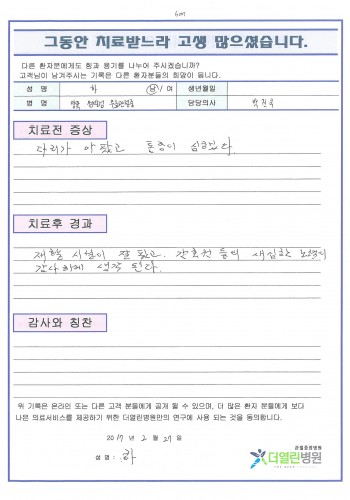 그동안 치료받느라 고생 많으셨습니다.
다른 환자분에게도 힘과 용기를 나누어 주시겠습니까?
고객님이 남겨주시는 기록은 다른 환자분들의 희망이 됩니다.
성 명 하 남 / 여 생년월일
병 명 담당의사 박진국
치료전 증상
다리가 아팠고 통증이 심했다.
치료후 경과
재활 시설이 잘 됐고. 간호원 들의 세심한 노력이
감사하게 생각 된다.
감사와 칭찬
위 기록은 온라인 또는 다른 고객 분들에게 공개 될 수 있으며, 더 많은 환자 분들에게 보다
나은 의료서비스를 제공하기 위한 더열린병원만의 연구에 사용 되는 것을 동의합니다.
2017 년 2 월 27 일
성 명 : 하
관절중점병원
더열린병원